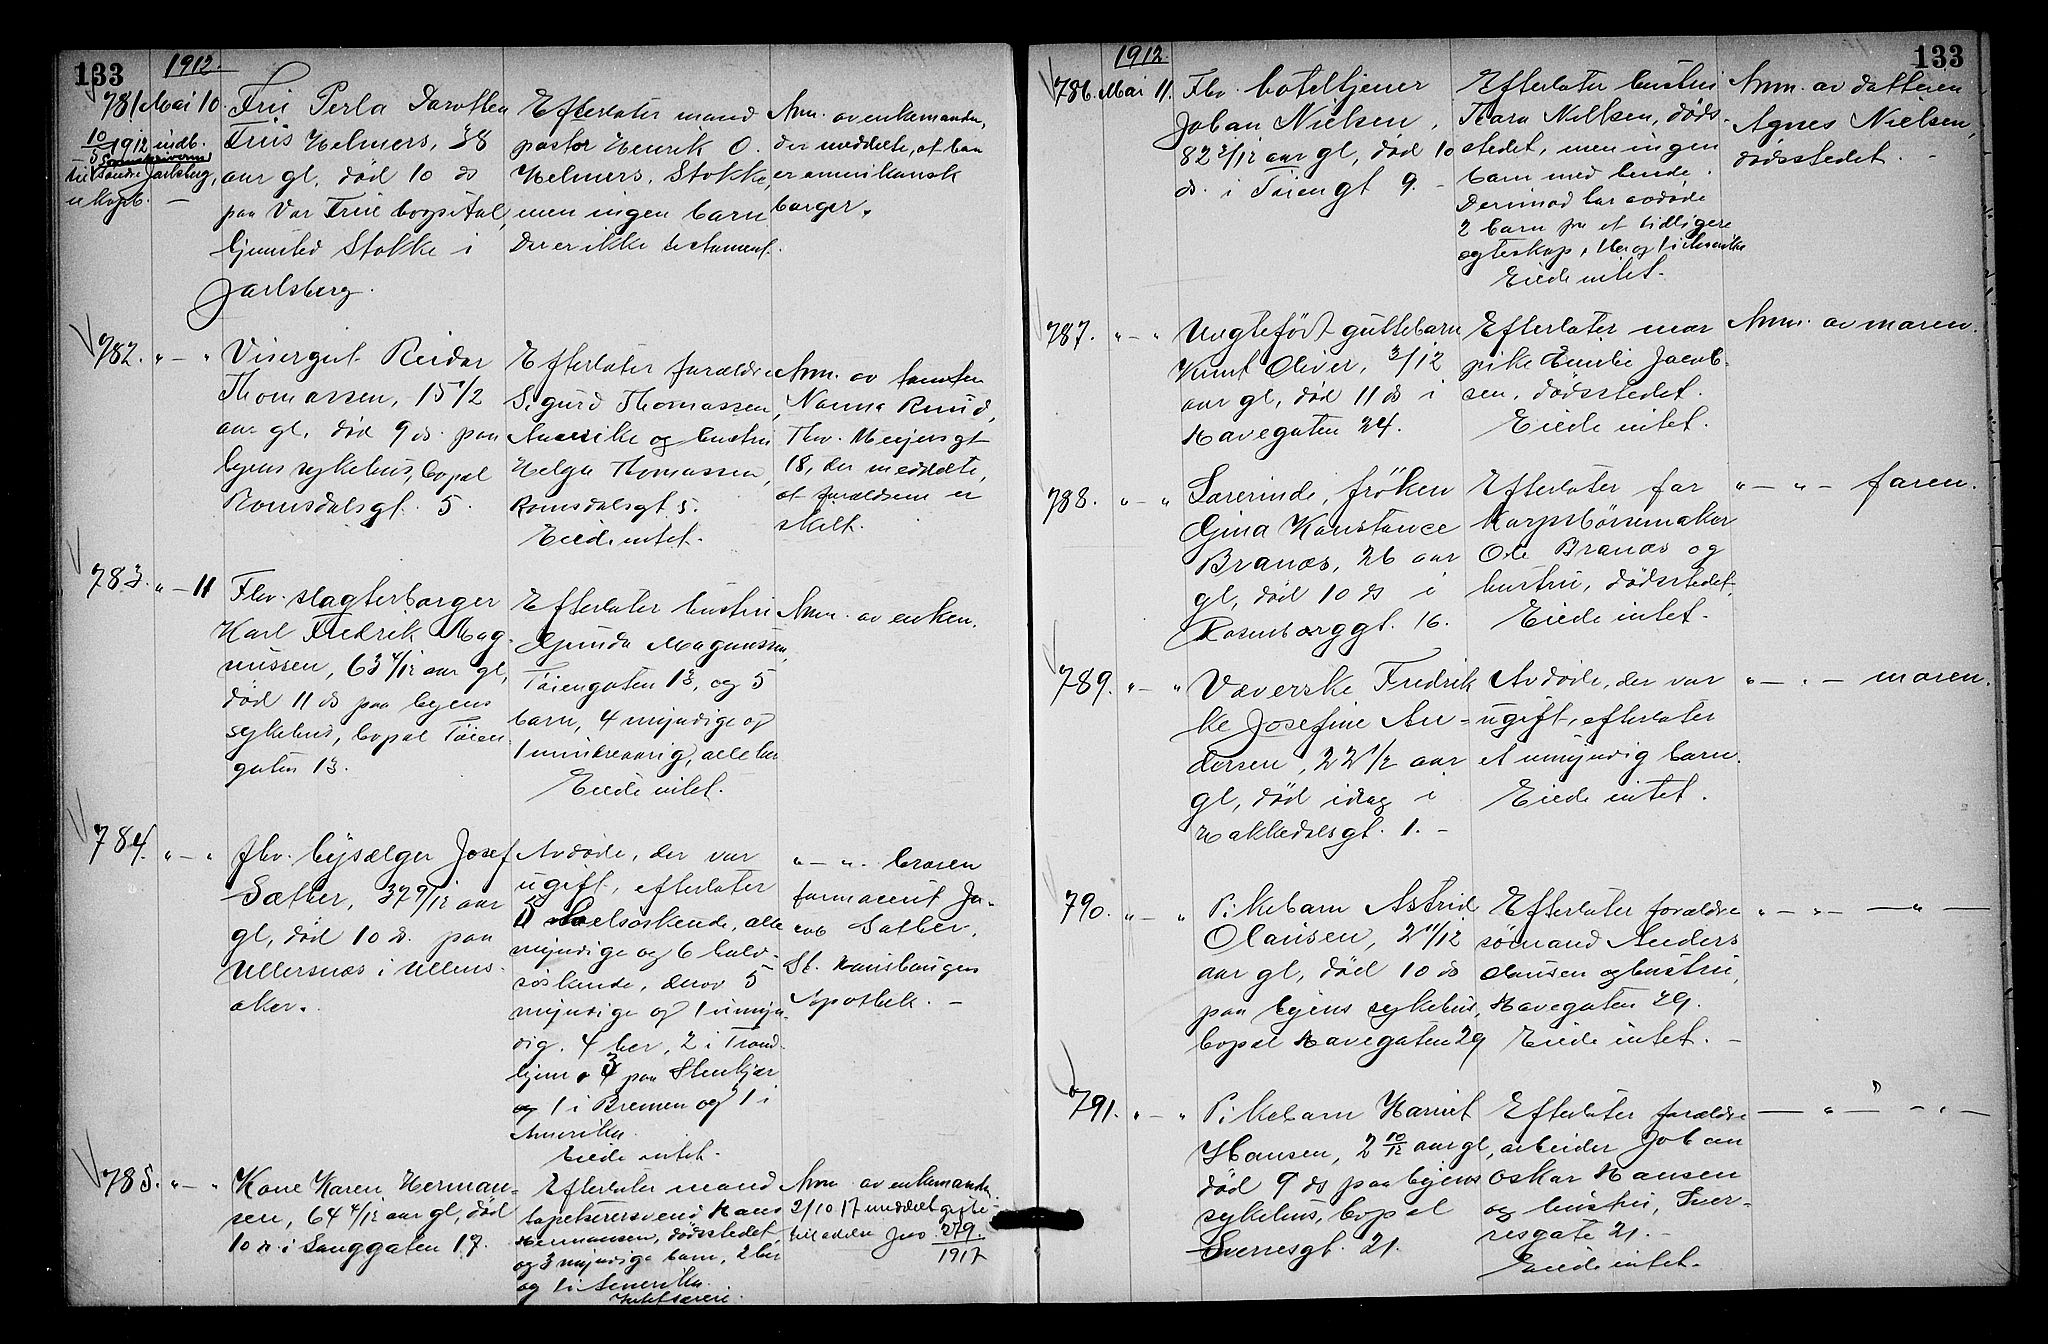 133
1912.
781 Mai 10.
10/5 1912 indb.
til Sorenskriveren
i Søndre Jarlsberg,
ukopb. —
Fru Perla Dorothea
Friis Helmers, 38
aar gl, død 10 ds
paa Vor Frue hospital,
hjemsted Stokke i
Jarlsberg.
Efterlater mand
pastor Henrik O.
Helmers, Stokke,
men ingen barn
Der er ikke testament.
Anm. av enkemanden,
der meddelte, at han
er amerikansk
borger.
782. " — "
Visergut Reidar
Thomassen, 15 1/2
aar gl, død 9 ds. paa
byens sykehus, bopæl
Romsdalsgt. 5.
Efterlater forældre
Sigurd Thomassen,
Amerika og hustru
Helga Thomassen,
Romsdalsgt 5.
Eiede intet.
Anm. av tanten
Nanna Ruud,
Thv. Meyersgt
18, der meddelte,
at forældrene er
skilt.
783. " — 11
Fhv. slagterborger
Karl Fredrik Mag-
nussen, 63 4/12 aar gl,
død 11 ds paa byens
sykehus, bopæl Tøien
gaten 13.
Efterlater hustru
Gunda Magnussen,
Tøiengaten 13, og 5
barn, 4 myndige og
1 mindreaarig, alle her
Eiede intet.
Anm. av enken.
784. " — "
fhv. bysælger Josef
Sæther, 37 9/12 aar
gl, død 10 ds. paa
Ullersnæs i Ullens-
aker.
Avdøde, der var
ugift, efterlater
5 helsøskende, alle
myndige og 6 halv-
søskende, derav 5
myndige og 1 umyn-
dig. 4 her, 2 i Trond-
hjem, 3 paa Stenkjær
og 1 i Bremen og 1 i
Amerika.
Eiede intet.
" — ". broren
farmaceut Ja-
cob Sæther,
St. Hanshaugens
Apothek. —
785. " — "
Kone Karen Herman-
sen, 64 4/12 aar gl, død
10 ds. i Langgaten 17.
Efterlater mand
tapetserersvend Hans
Hermansen, dødsstedet,
og 3 myndige barn, 2 her
og 1 i Amerika.
Anm. av enkemanden
2/10 17 meddelt gifte-
tilladelse Jno 279/1917
133
1912.
786. Mai 11.
Fhv. hoteltjener
Johan Nielsen,
82 2/12 aar gl, død 10
ds. i Tøiengt 9. —
Efterlater hustru
Thara Nielsen, døds-
stedet, men ingen
barn med hende.
Derimod har avdøde
2 barn fra et tidligere
egteskap, 1 her og 1 i Amerika
Eiede intet.
Anm. av datteren
Agnes Nielsen,
dødsstedet. —
787. " — "
Uegtefødt guttebarn
Knut Oliver, 3/12
aar gl, død 11 ds i
Havegaten 24.
Efterlater mor
pike Emilie Jacob-
sen, dødsstedet.
Eiede intet.
Anm. av moren.
788. " — "
Lærerinde, frøken
Gina Konstance
Branæs, 26 aar
gl, død 10 ds i
Rosenborggt. 16.
Efterlater far
korpsbørsemaker
Ole Branæs og
hustru, dødsstedet.
Eiede intet.
" — " — faren.
789. " — "
Væverske Fredrik
ke Josefine An-
dersen, 22 1/2 aar
gl, død idag i
Hakkedalsgt. 1. —
Avdøde, der var
ugift, efterlater
et umyndig barn.
Eiede intet.
" — " — moren.
790. " — "
Pikebarn Astrid
Olausen, 2 11/12
aar gl, død 10 ds
paa byens sykehus,
bopæl Havegaten 29
Efterlater forældre
sømand Anders
Olausen og hustru,
Havegaten 29.
Eiede intet. —
" — " — — " —
791. " — "
Pikebarn Harriet
Hansen, 2 10/12 aar gl,
død 9 ds paa byens
sykehus, bopæl
Sverresgt. 21.
Efterlater forældre
arbeider Johan
Oskar Hansen
og hustru, Sver-
resgate 21. —
Eiede intet.
— " — — " —